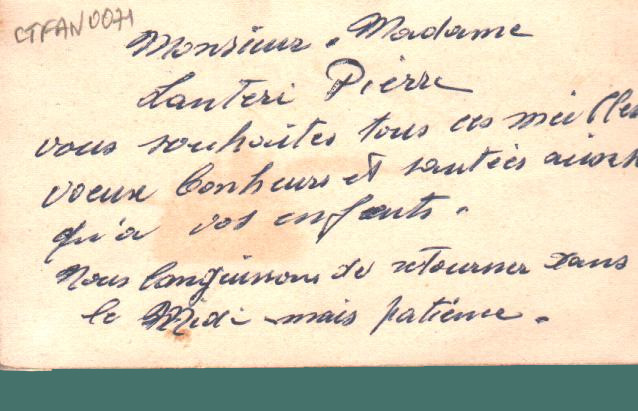 CTFAN0071
Monsieur. Madame
Lanteri Pierre
vous souhaites tous ces meilleu
voeux bonheurs et santées ainsi
qu'a vos enfants.
Nous languissons de retourner dans
le Midi mais patience.